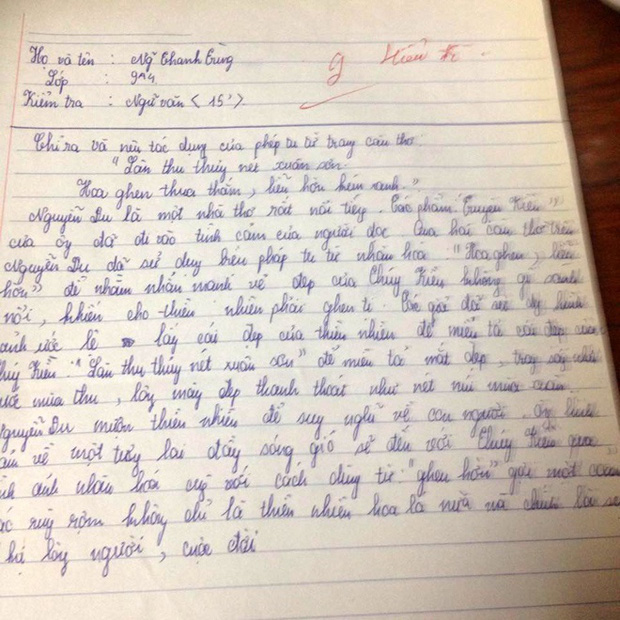 Họ và tên : Ngô Thanh Tùng
Lớp : 9A4
Kiểm tra : Ngữ văn < 15' >
9
Chỉ ra và nêu tác dụng của phép tu từ trong câu thơ.
"Làn thu thủy nét xuân sơn
Hoa ghen thua thắm, liễu hờn kém xanh."
Nguyễn Du là một nhà thơ rất nổi tiếng. Tác phẩm "Truyện Kiều"
của ông đã đi vào tình cảm của người đọc. Qua hai câu thơ trên
Nguyễn Du đã sử dụng biện pháp tu từ nhân hóa "Hoa ghen, liễu
hờn" để nhằm nhấn mạnh vẻ đẹp của Thúy Kiều không gì sánh
nổi, khiến cho thiên nhiên phải ghen tị. Tác giả đã sử dụng hình
ảnh ước lệ lấy cái đẹp của thiên nhiên để miêu tả cái đẹp của
Thúy Kiều: "Làn thu thủy nét xuân sơn" để miêu tả mắt đẹp, trong sáng như
nước mùa thu, lông mày đẹp thanh thoát như nét núi mùa xuân
Nguyễn Du mượn thiên nhiên để suy nghĩ về con người.
về một tương lai đầy sóng gió sẽ đến với Thúy Kiều qua
hình ảnh nhân hóa cùng với cách dùng từ "ghen hờn" gợi một
rùng rợn không chỉ là thiên nhiên hoa lá nữa mà chính là
lòng người, cuộc đời